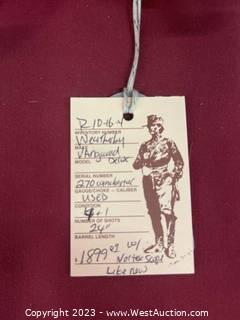 R 10-16-4
INVENTORY NUMBER
Weatherby
MAKE
Vanguard
MODEL Delux
SERIAL NUMBER
270 weatherby
GAUGE/CHOKE - CALIBER
USED
CONDITION
4+1
NUMBER OF SHOTS
24"
BARREL LENGTH
1899 w/
scope
Like new
Copyright 2023 - www.WestAuction.com